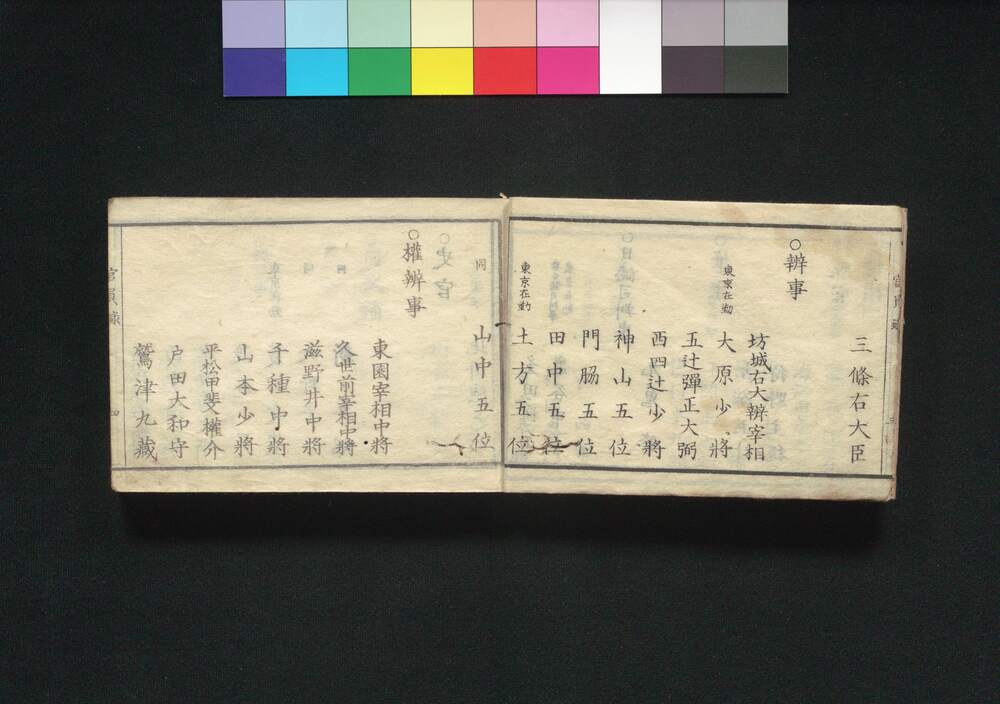 三條右大臣
○辨事
坊城右大辨宰相
東京在勤
大原少將
五辻彈正大弼
西四辻少將
神山五位
門脇五位
田中五位
東京在勤
土方五位
同
山中五位
○權辨事
東園宰相中將
久世前宰相中將
滋野井中將
千種中將
山本少將
平松甲斐權介
戸田大和守
鷲津九藏
官員録
四